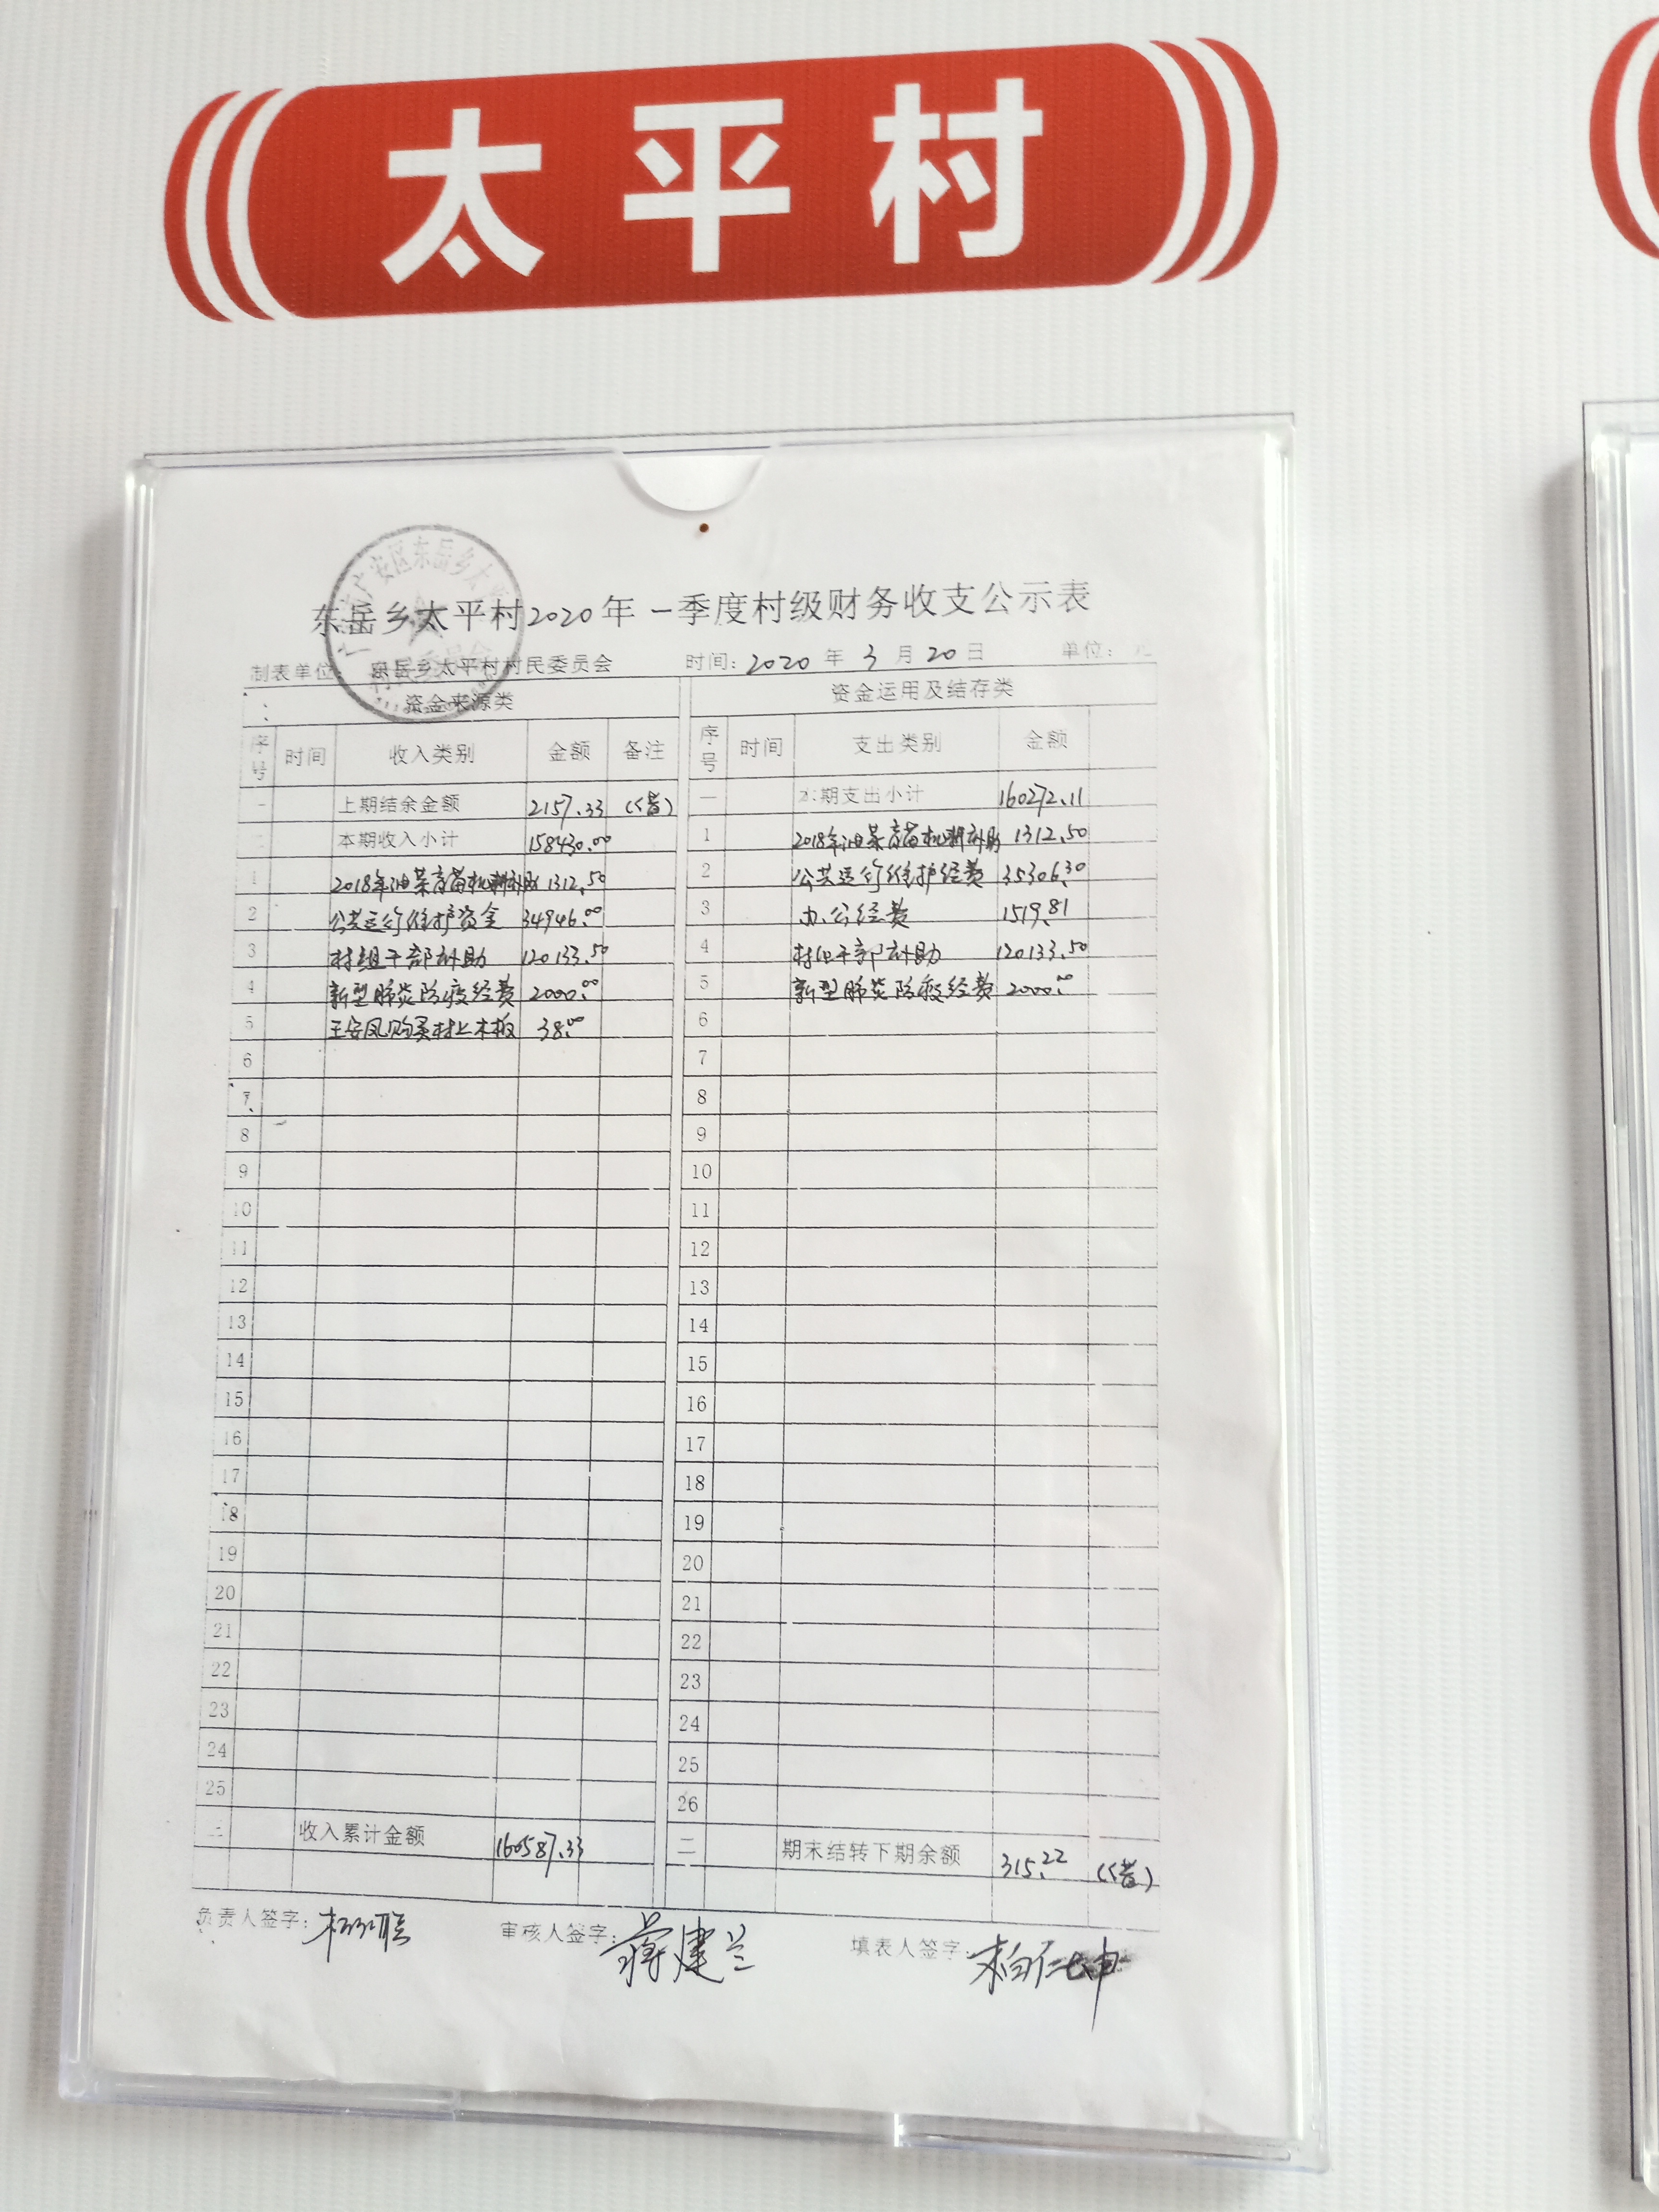 太平村
广安区东岳乡太
东岳乡太平村2020年一季度村级财务收支公示表
制表单位: 东岳乡太平村村民委员会 时间: 2020 年 3 月 20 日 单位: 元
资金来源类 资金运用及结存类
序号 时间 收入类别 金额 备注 序号 时间 支出类别 金额
一 上期结余金额 2157.33 一 本期支出小计 160272.11
二 本期收入小计 158430.00 1 2018年油菜育苗机耕补助 1312.50
1 2018年油菜育苗机耕补助 1312.50 2 公共运行维护经费 35306.30
2 公共运行维护资金 34946.00 3 办公经费 1519.81
3 村组干部补助 120133.50 4 村组干部补助 120133.50
4 新型肺炎防疫经费 2000.00 5 新型肺炎防疫经费 2000.00
5 王安凤购买村上木板 38.00 6
6 7
7 8
8 9
9 10
10 11
11 12
12 13
13 14
14 15
15 16
16 17
17 18
18 19
19 20
20 21
21 22
22 23
23 24
24 25
25 26
三 收入累计金额 160587.33 二 期末结转下期余额 315.22
负责人签字: 审核人签字: 蒋建兰 填表人签字: 柏仁坤